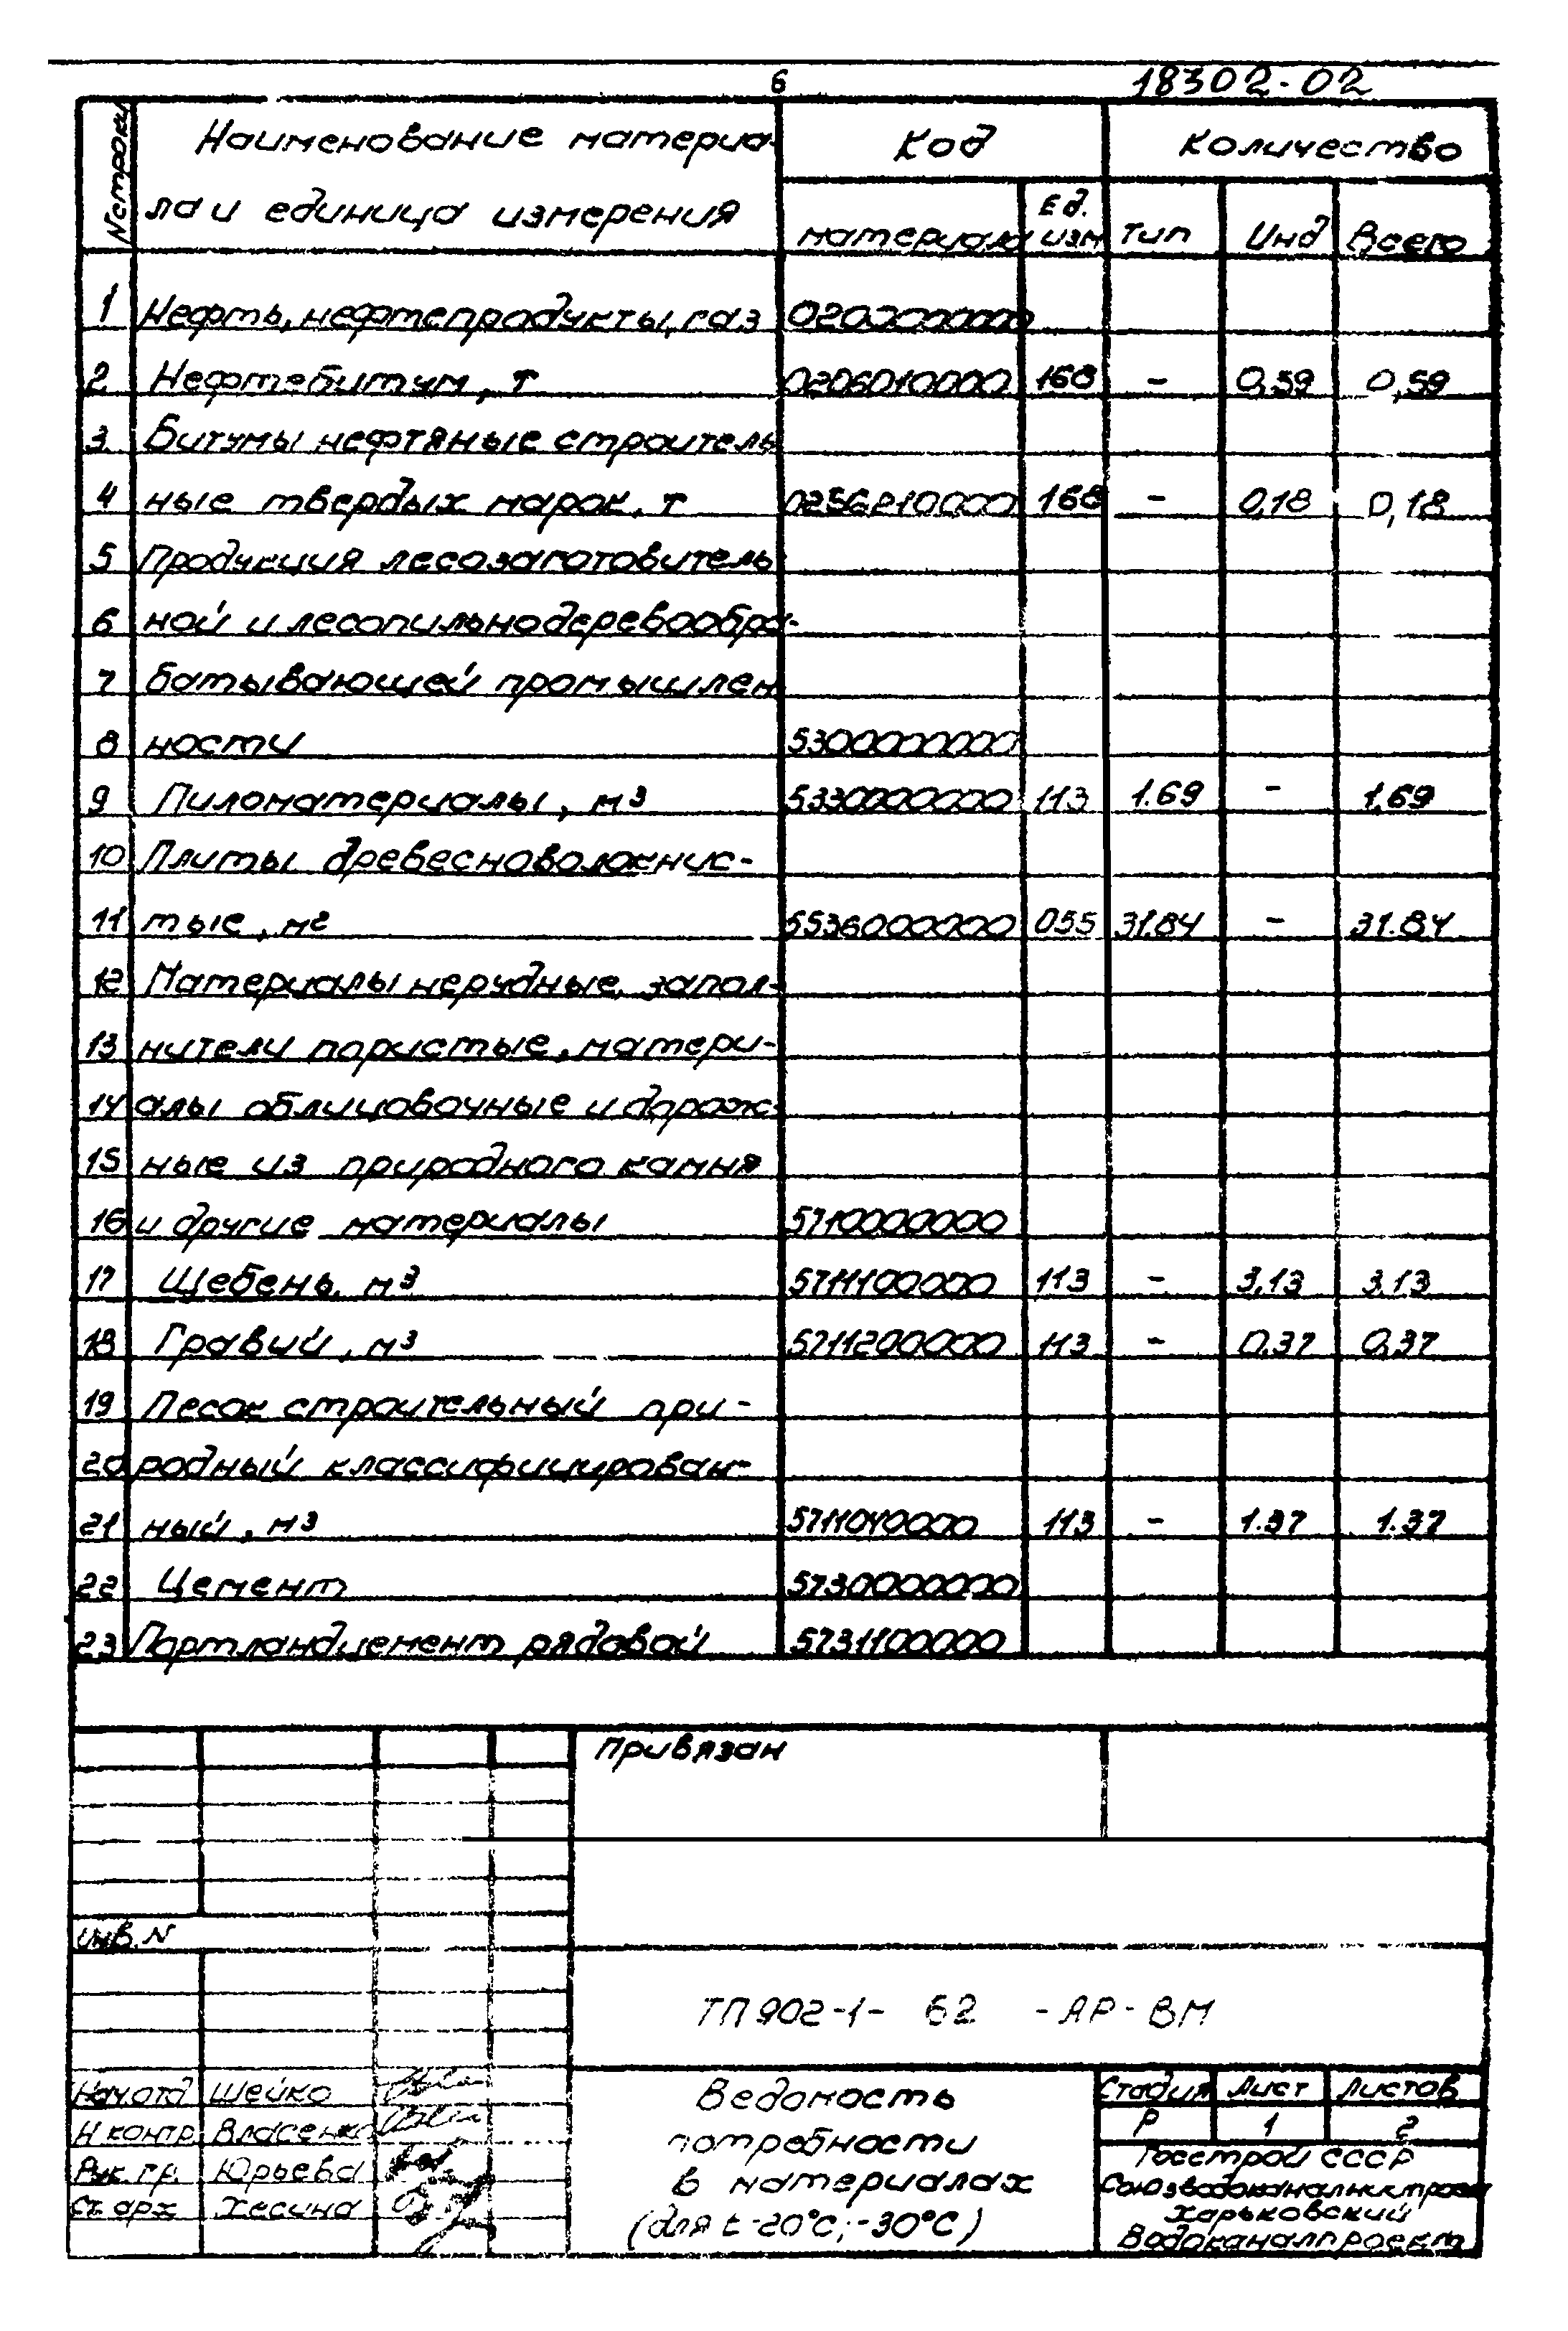 6 18302-02
N строки Наименование материа- Код Количество
ла и единица измерения материала Ед. изм Тип Инд Всего
1 Нефть, нефтепродукты, газ 0200000000
2 Нефтебитум, т 0206010000 168 - 0,59 0,59
3. Битумы нефтяные строитель
4 ные твердых марок, т 0256210000 168 - 0,18 0,18
5 Продукция лесозаготовитель
6 ной и лесопильнодеревообра-
7 батывающей промышлен
8 ности 5300000000
9 Пиломатериалы, м3 5330000000 113 1.69 - 1,69
10 Плиты древесноволокнис-
11 тые, м2 5536000000 055 31.84 - 31.84
12 Материалы нерудные, запол-
13 нители пористые, матери-
14 алы облицовочные и дорож-
15 ные из природного камня
16 и другие материалы 5710000000
17 Щебень, м3 5711100000 113 - 3,13 3,13
18 Гравий, м3 5711200000 113 - 0,37 0,37
19 Песок строительный при-
20 родный классифицирован-
21 ный, м3 5711040000 113 - 1.37 1.37
22 Цемент 5730000000
23 Портландцемент рядовой 5731100000
Привязан
Инв. N
ТП 902-1- 62 -АР-ВМ
Нач отд Шейко
Н контр. Власенко
Рук. гр. Юрьева
Ст. арх Хесина
Ведомость
потребности
в материалах
(для t-20°С;-30°С)
Стадия Лист Листов
Р 1 2
Госстрой СССР
Союзводоканалниипроект
Харьковский
Водоканалпроект